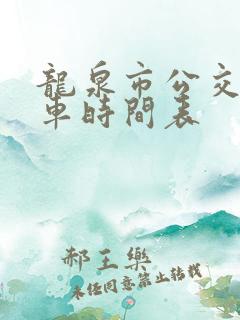 龍泉市公交
車時間表
郝王樂
未经同意禁止转载